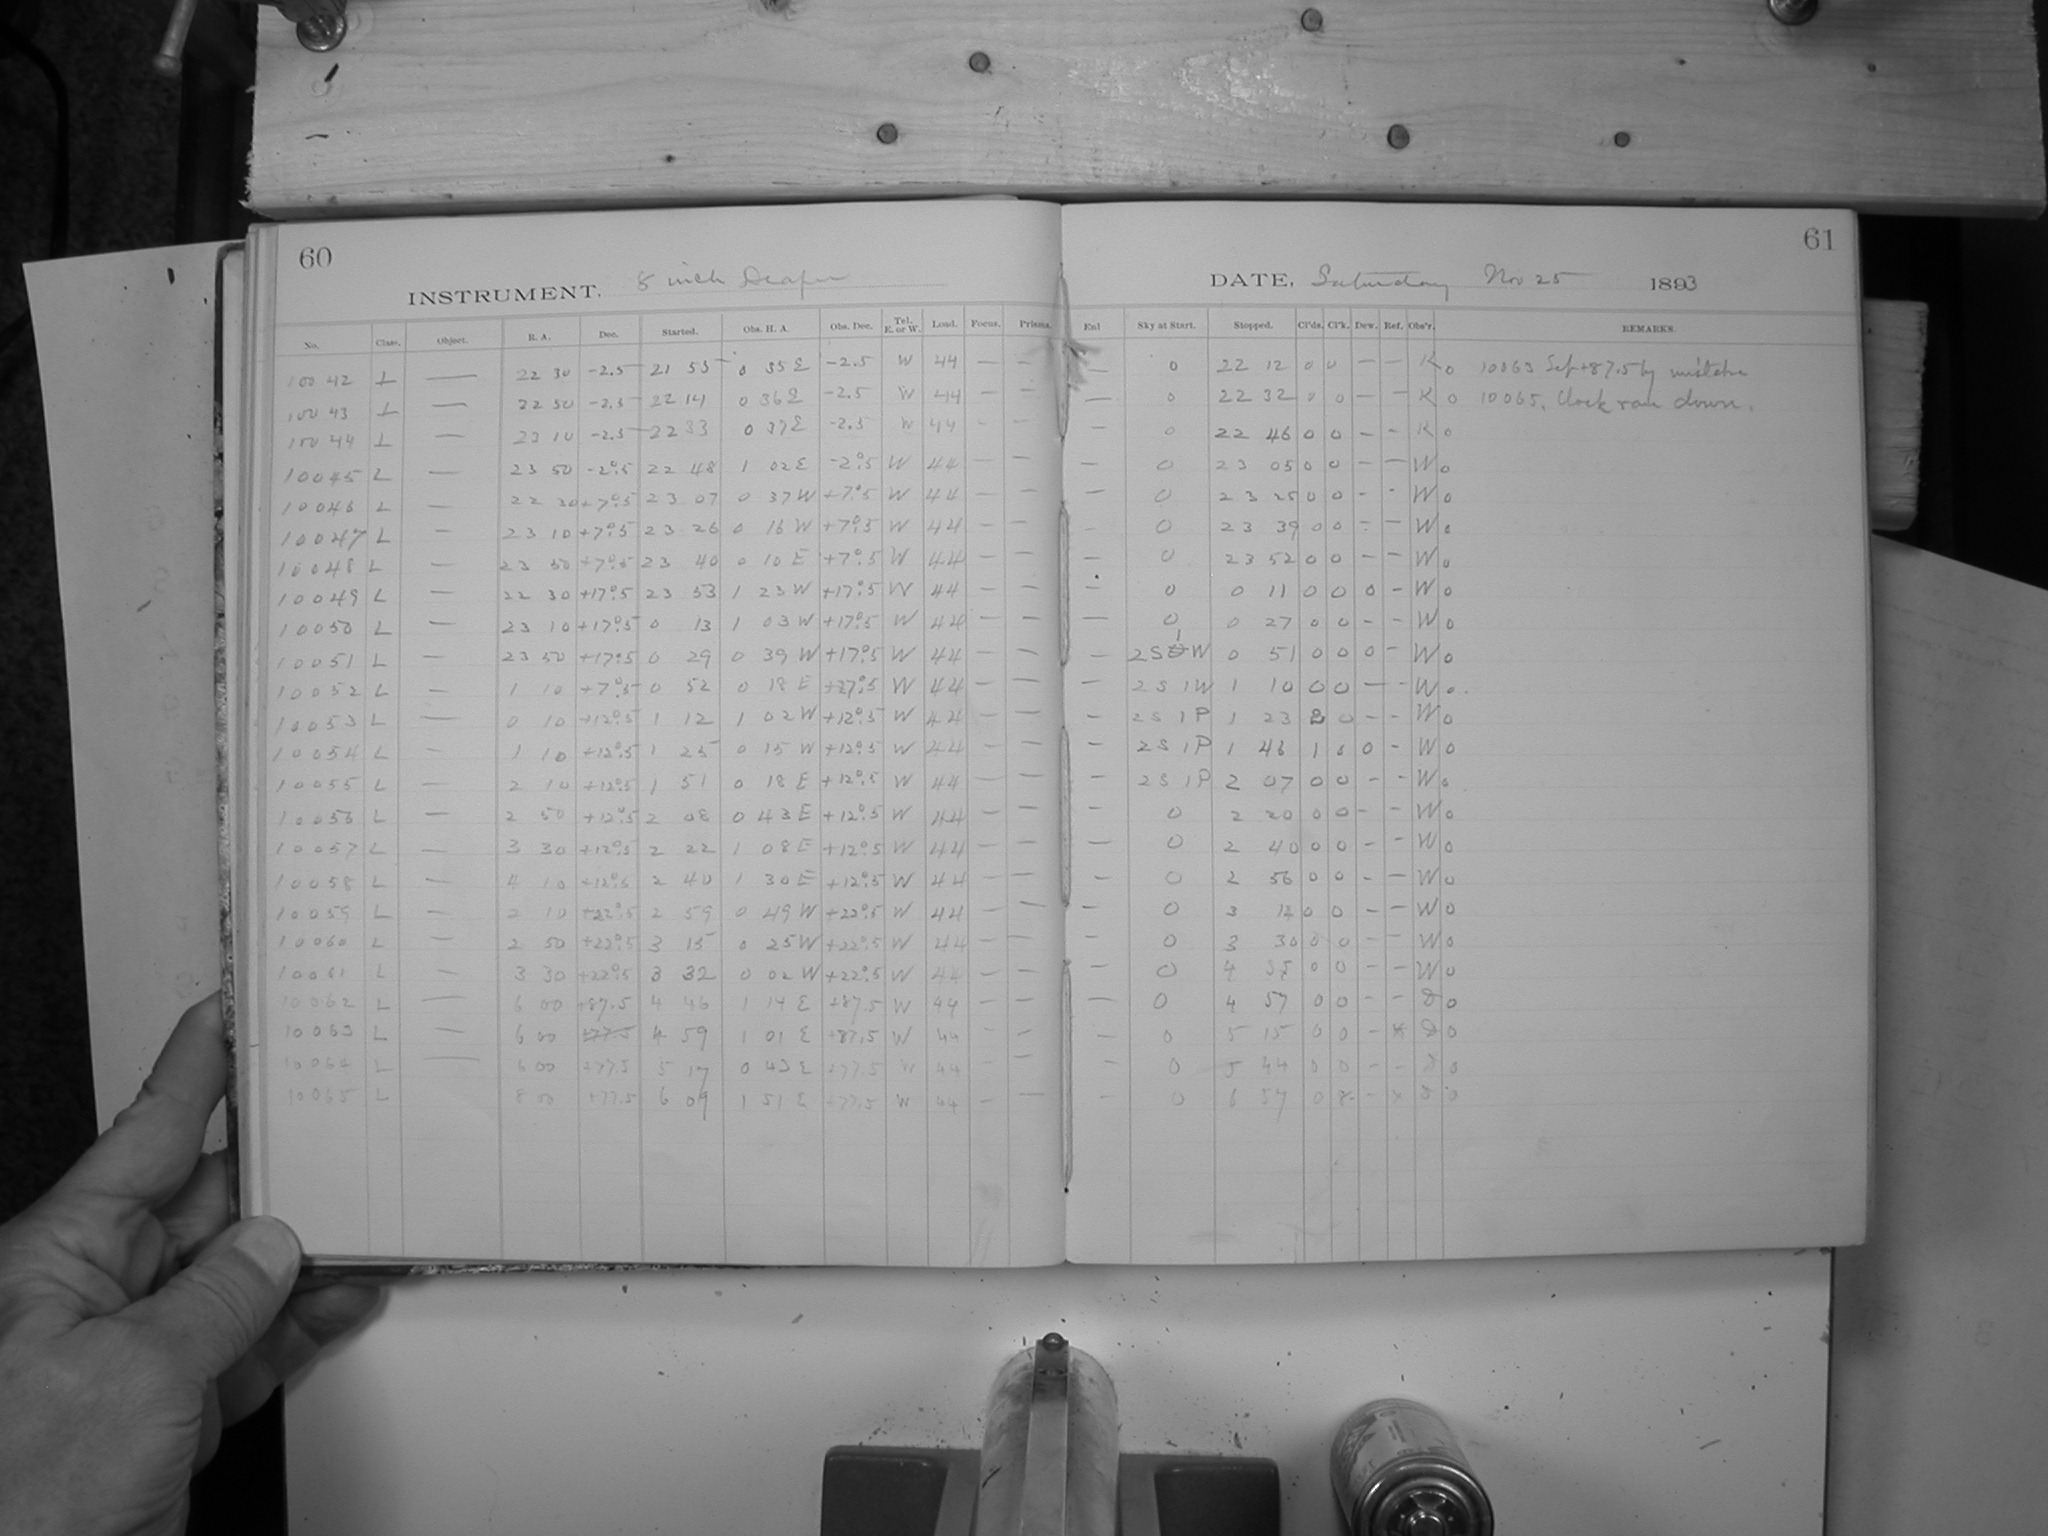 60
INSTRUMENT. 8 inch Draper
No. Class. Object. R. A. Dec. Started. Obs. H. A. Obs. Dec. Tel. E. or W. Load. Focus. Prisms.
10042 L — 22 30 -2.5 21 55 0 35 E -2.5 W 44 — —
10043 L — 22 50 -2.5 22 14 0 36 E -2.5 W 44 — —
10044 L — 23 10 -2.5 22 33 0 37 E -2.5 W 44 — —
10045 L — 23 50 -2°.5 22 48 1 02 E -2°.5 W 44 — —
10046 L — 22 30 +7°.5 23 07 0 37 W +7°.5 W 44 — —
10047 L — 23 10 +7°.5 23 26 0 16 W +7°.5 W 44 — —
10048 L — 23 50 +7°.5 23 40 0 10 E +7°.5 W 44 — —
10049 L — 22 30 +17°.5 23 53 1 23 W +17°.5 W 44 — —
10050 L — 23 10 +17°.5 0 13 1 03 W +17°.5 W 44 — —
10051 L — 23 50 +17°.5 0 29 0 39 W +17°.5 W 44 — —
10052 L — 1 10 +7°.5 0 52 0 18 E W 44 — —
10053 L — 0 10 +12°.5 1 12 1 02 W +12°.5 W 44 — —
10054 L — 1 10 +12°.5 1 25 0 15 W +12°.5 W 44 — —
10055 L — 2 10 +12°.5 1 51 0 18 E +12°.5 W 44 — —
10056 L — 2 50 +12°.5 2 08 0 43 E +12°.5 W 44 — —
10057 L — 3 30 +12°.5 2 22 1 08 E +12°.5 W 44 — —
10058 L — 4 10 +12°.5 2 40 1 30 E +12°.5 W 44 — —
10059 L — 2 10 +22°.5 2 59 0 49 W +22°.5 W 44 — —
10060 L — 2 50 +22°.5 3 15 0 25 W +22°.5 W 44 — —
10061 L — 3 30 +22°.5 3 32 0 02 W +22°.5 W 44 — —
10062 L — 6 00 +87.5 4 46 1 14 E +87.5 W 44 — —
10063 L — 6 00 +77.5 4 59 1 01 E +87.5 W 44 — —
10064 L — 6 00 +77.5 5 17 0 43 E +77.5 W 44 — —
10065 L 8 00 +77.5 6 09 1 51 E +77.5 W 44 — —
61
DATE, Saturday Nov 25 1893
Enl Sky at Start. Stopped. Cl'ds. Cl'k. Dew. Ref. Obs'r. REMARKS.
— 0 22 12 0 0 — — K 0 10063 Set +87.5 by mistake
— 0 22 32 0 0 — — K 0 10065. Clock ran down.
— 0 22 46 0 0 — — K 0
— 0 23 05 0 0 — — W 0
— 0 23 25 0 0 - - W 0
0 23 39 0 0 - - W 0
— 0 23 52 0 0 — — W 0
— 0 0 11 0 0 0 - W 0
— 0 0 27 0 0 - - W 0
— 2S 1 W 0 51 0 0 0 - W 0
— 2S 1W 1 10 0 0 — — W 0
— 2S 1P 1 23 2 0 - - W 0
— 2S 1P 1 46 1 0 0 - W 0
— 2S 1P 2 07 0 0 - - W 0
— 0 2 20 0 0 - - W 0
— 0 2 40 0 0 - - W 0
— 0 2 56 0 0 - - W 0
— 0 3 0 0 - - W 0
— 0 3 30 0 0 - - W 0
— 0 4 0 0 - - W 0
— 0 4 57 0 0 - - D 0
— 0 5 15 0 0 - * D 0
— 0 5 44 0 0 - - D 0
— 0 6 57 0 * - * D 0